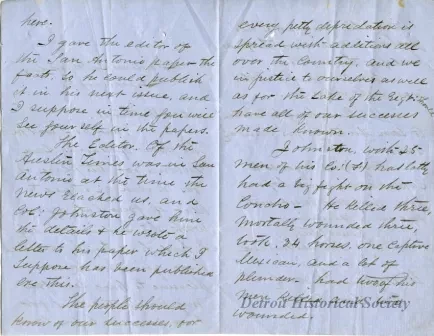 here.
I gave the editor of
the San Antonio paper the
facts. So he could publish
it in his next issue, and
I suppose in time you will
see yourself in the papers.
The Editor. Of the
Austin Times was in San
Antonio at the time the
news reached us, and
Col. Johnston gave him
the details & he wrote a
letter to his paper which I
suppose has been published
ere this.
The people should
know of our successes, for
every petty depredation is
spread with additions all
over the Country, and we
in justice to ourselves as well
as for the sake of the Regt. should
have all of our successes
made known.
Johnston. with 25
men of his Co: has lately
had a big fight on the
Concho - He killed three,
mortally wounded three,
took. 24 horses, one captive
Mexican, and a lot of
plunder - had two of his
men
wounded.
Detroit Historical Society